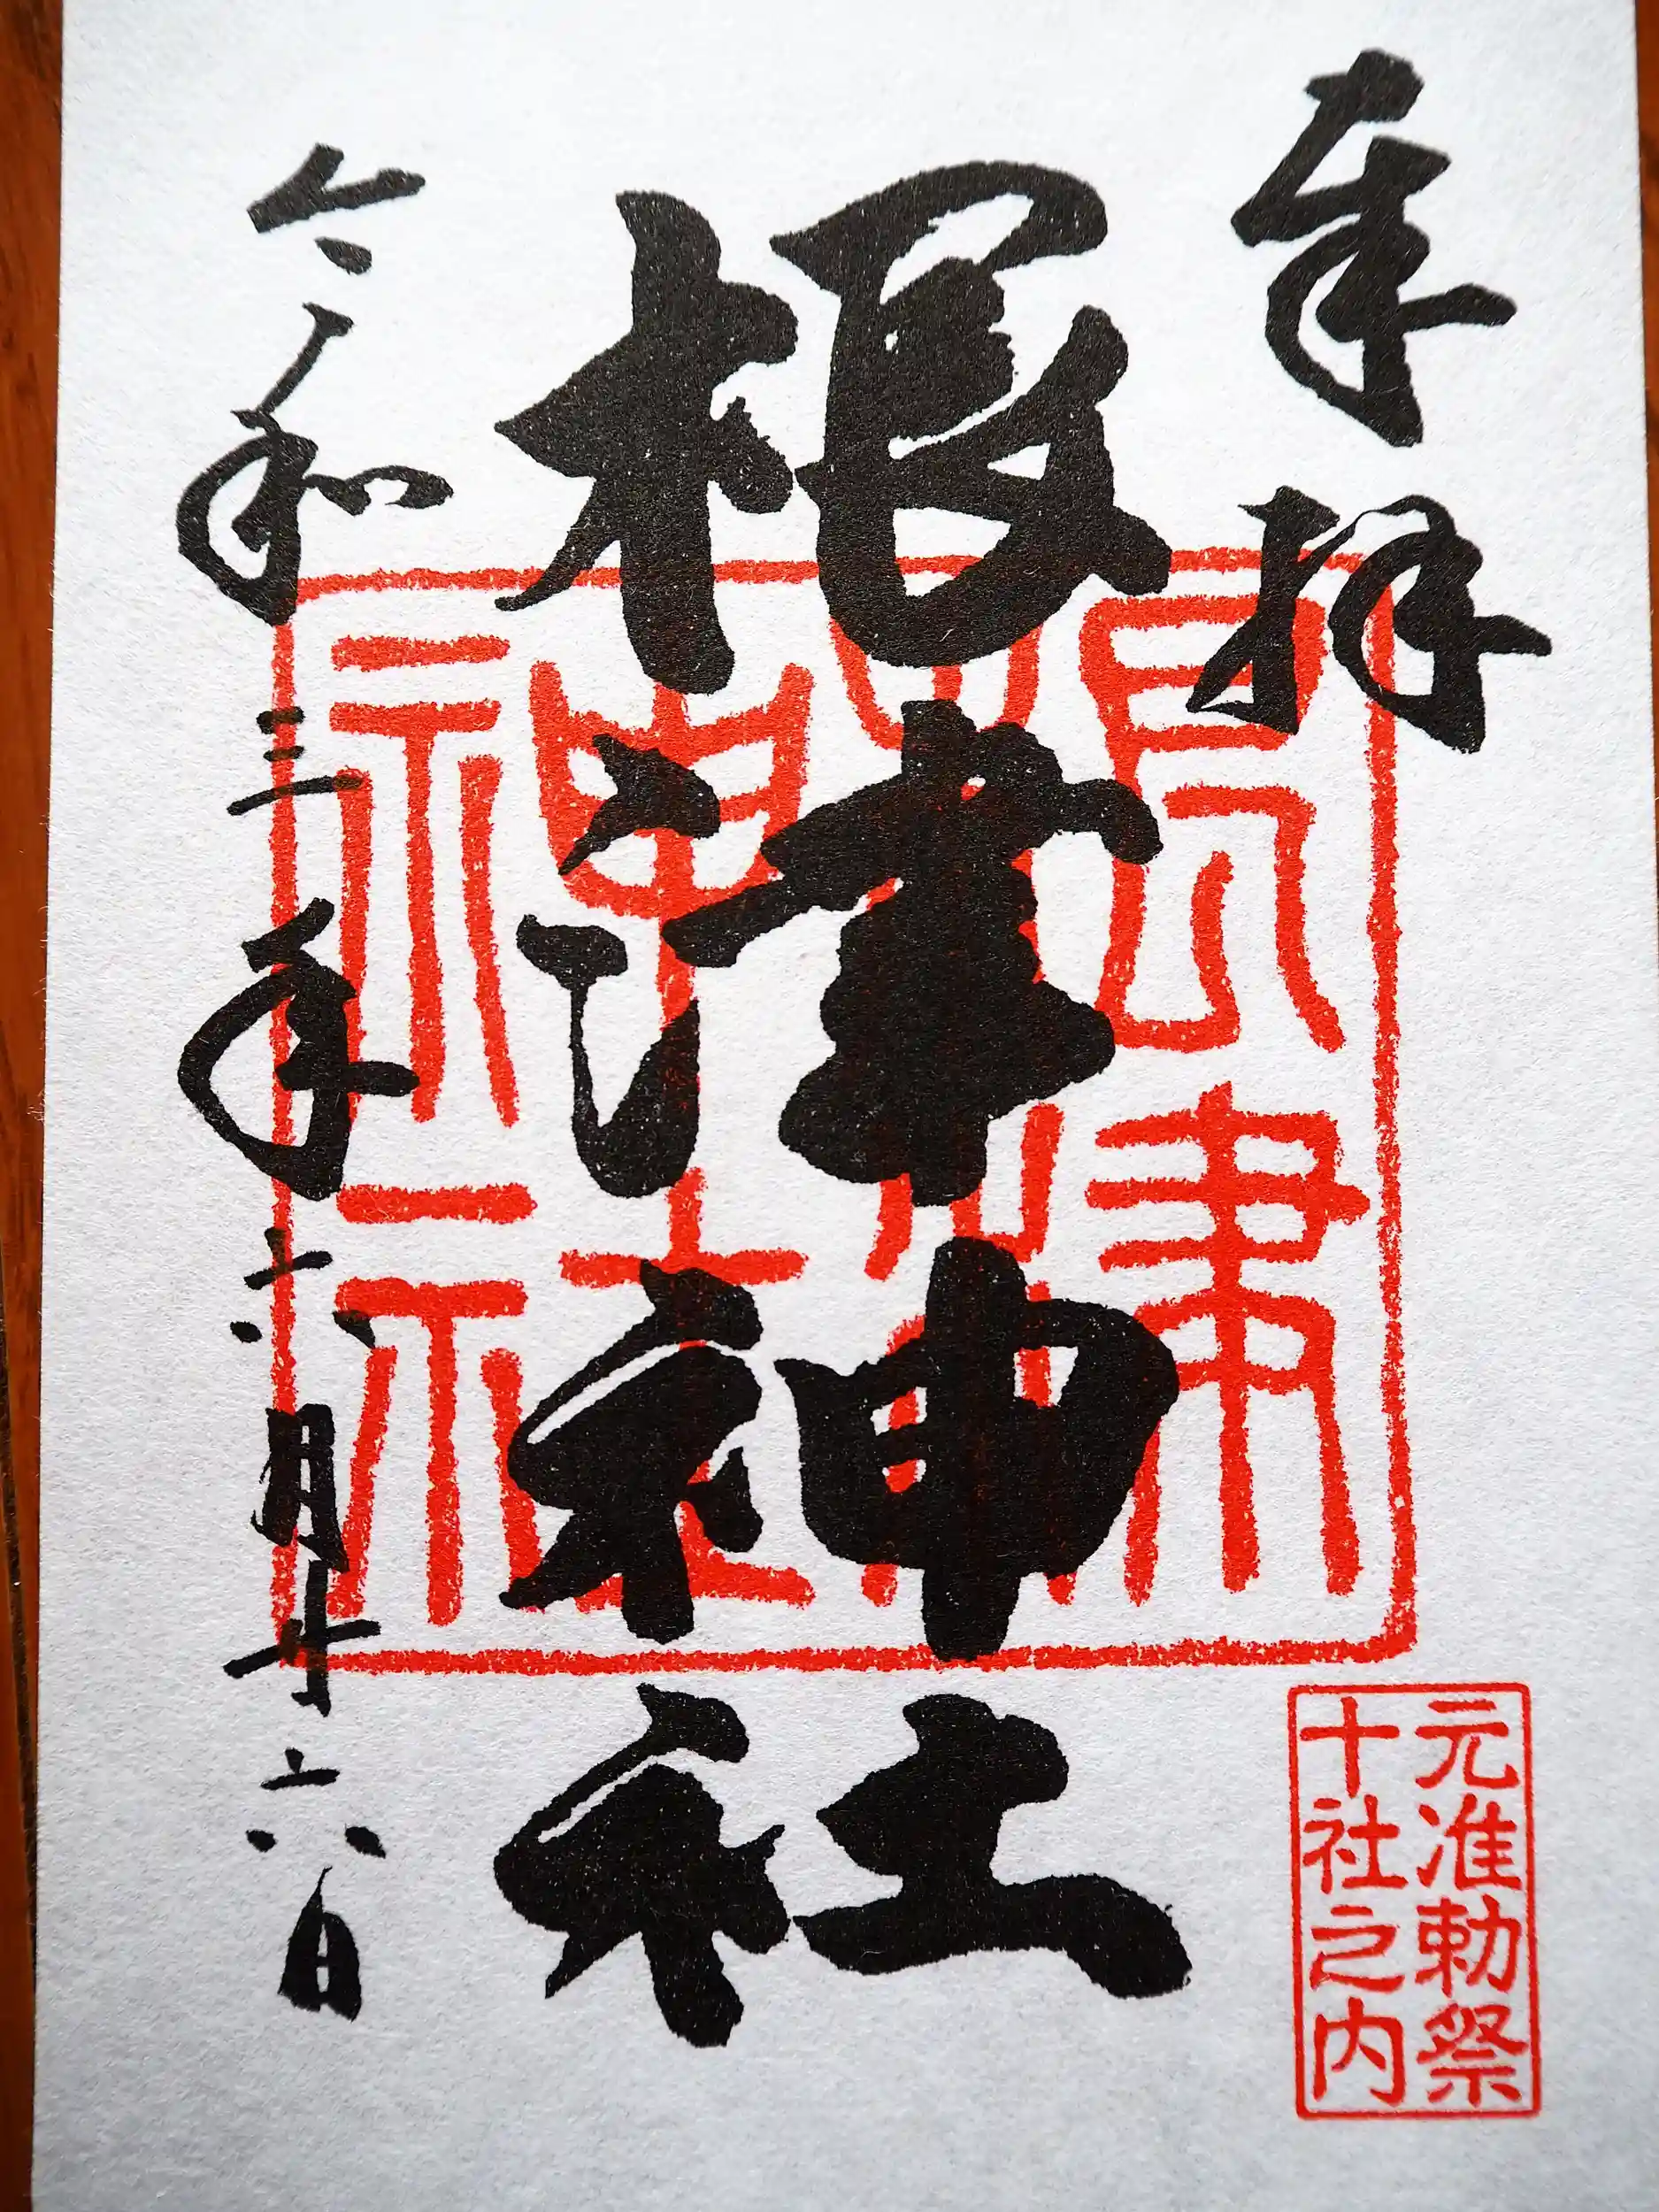 奉拝
根津神社
令和三年六月十六日
根津神社
元准勅祭
十社之内